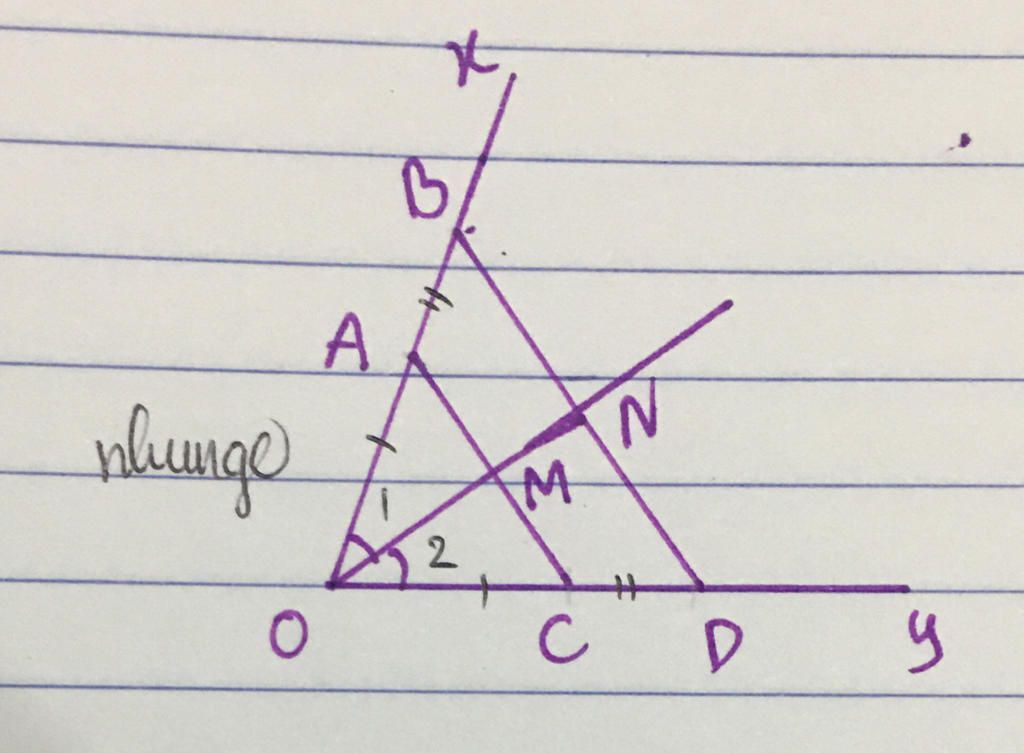 x
B
A
N
nhunge
M
1
2
O C D y